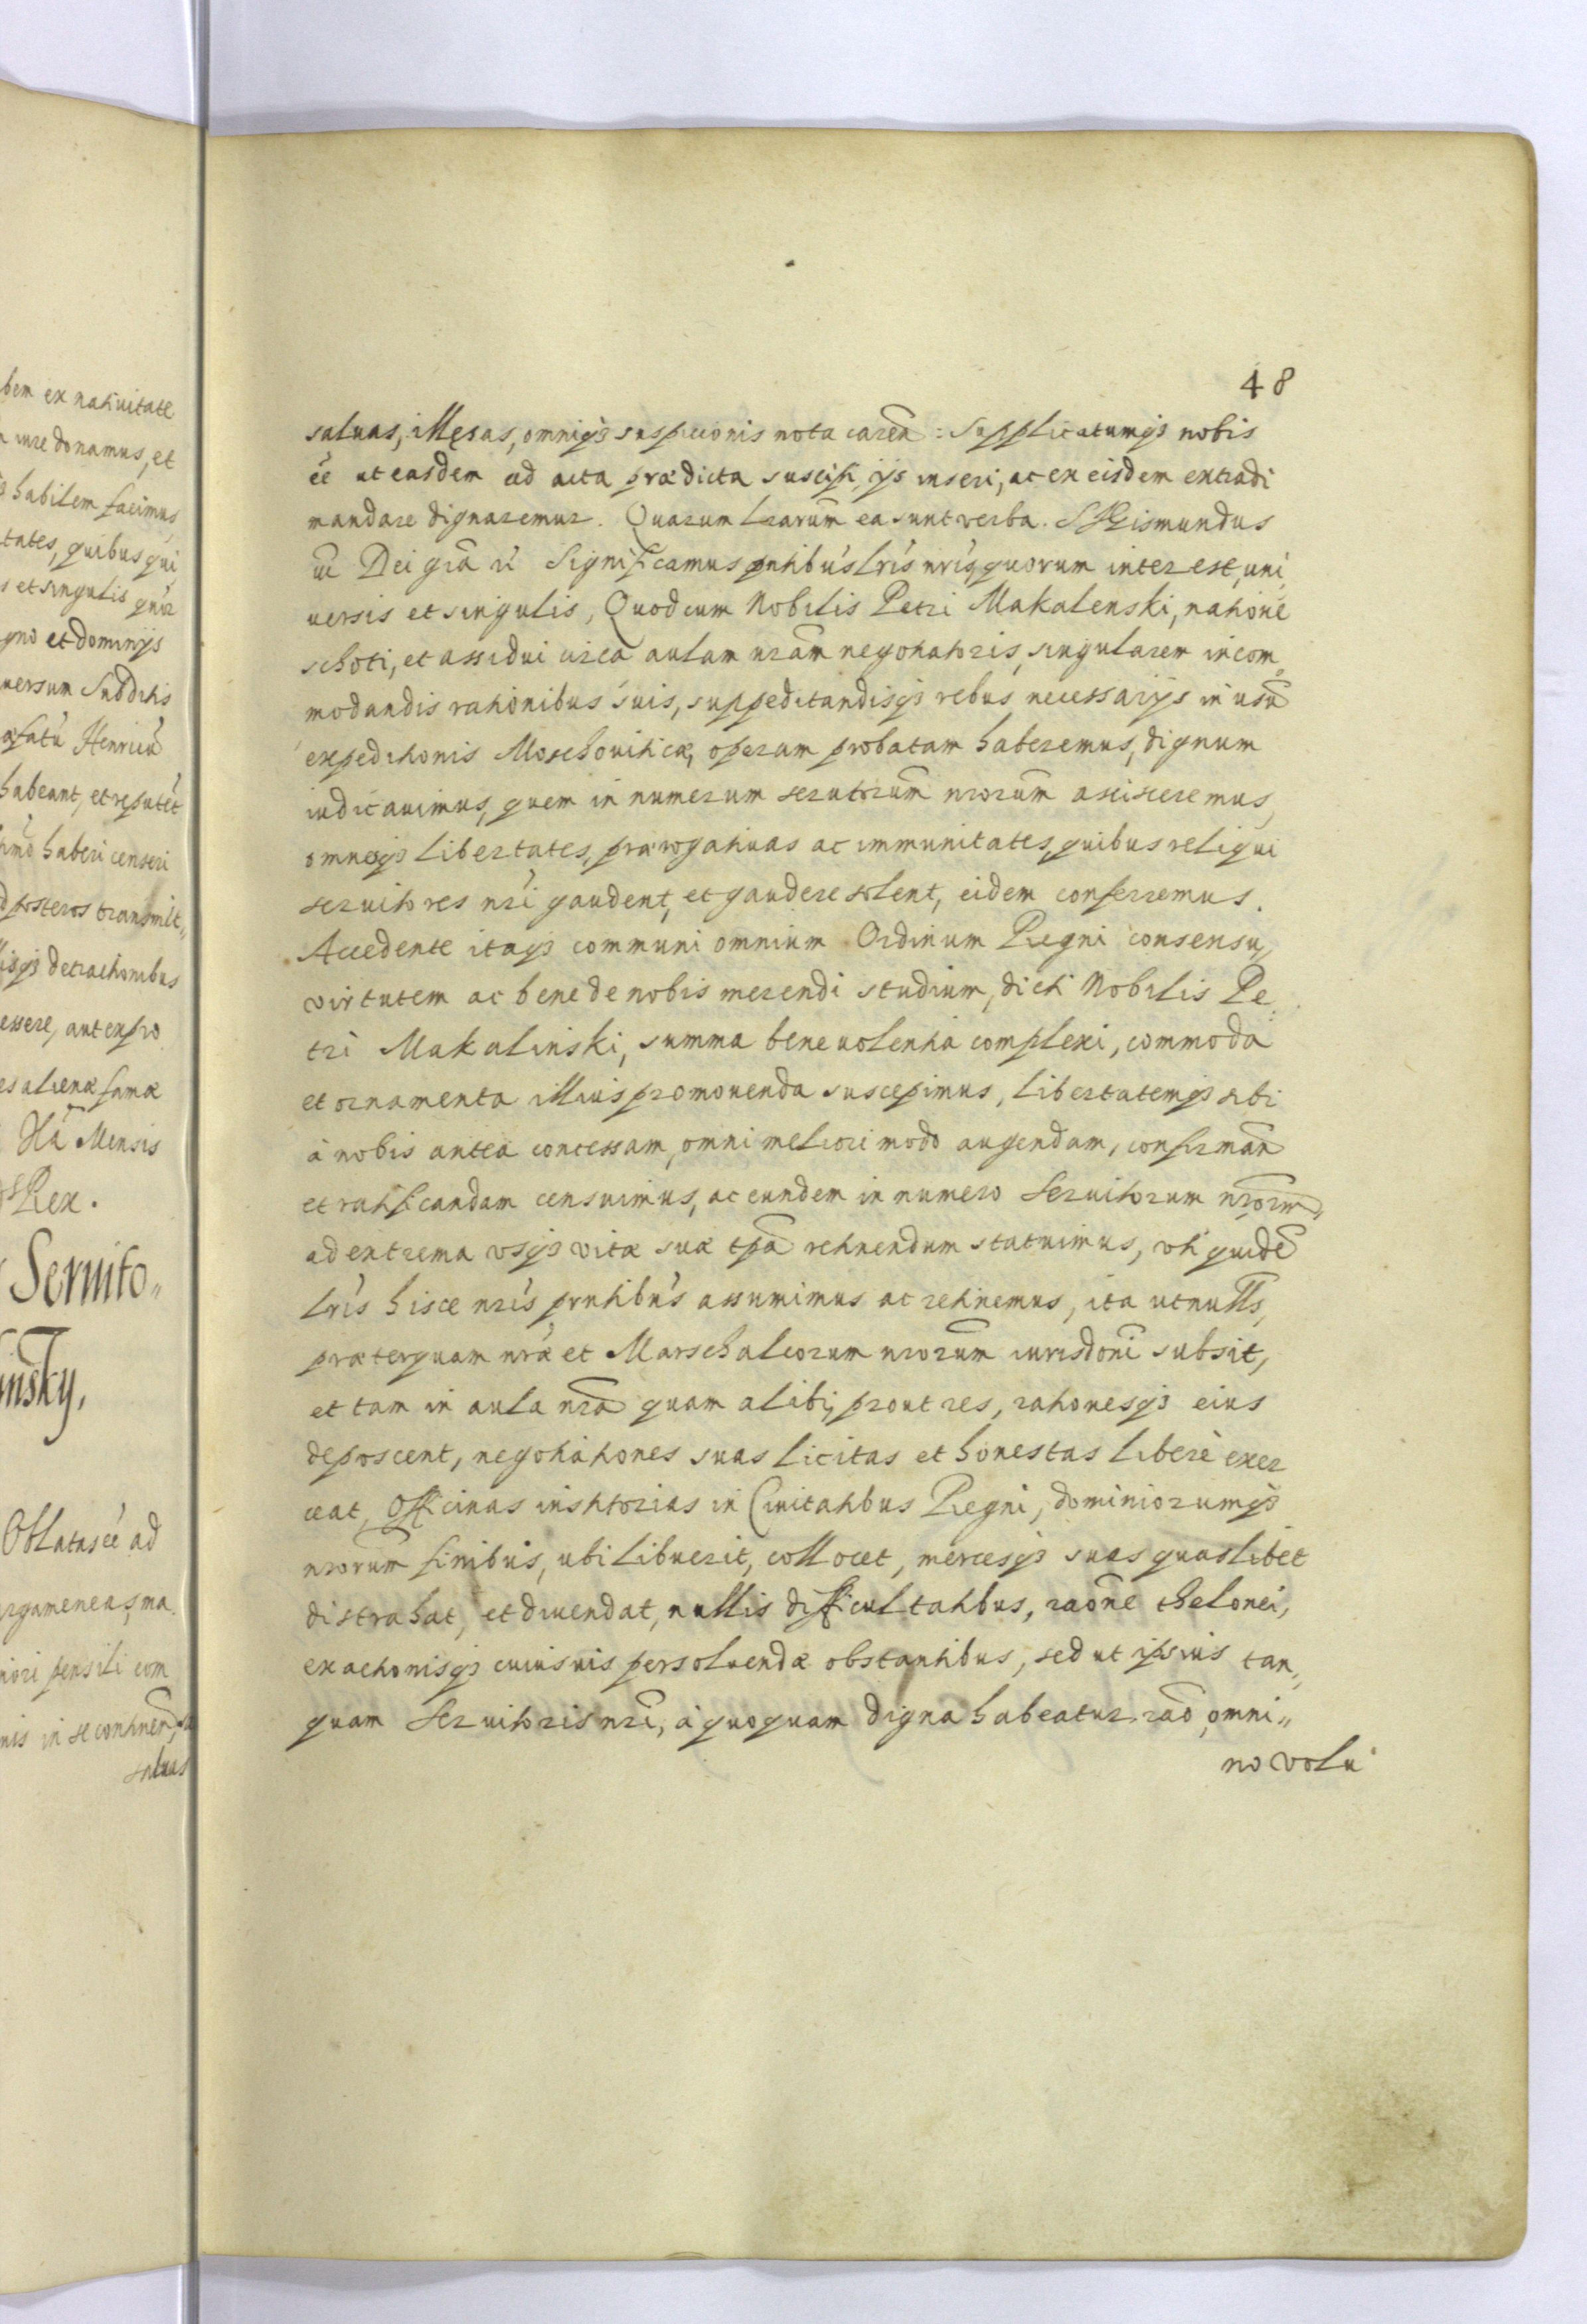 bem ex natiuitate
iure donamus, et
habilem facimus
tates, quibus qui
s et singulis
gno et dominijs
uersum Subditis
afatũ Henricũ
habeant, et reputẽt
haberi censeri
posteros transmit„
detractionibus
essere, aut ex pro
es alienæ famæ
Mensis
Rex.
Seruito„
insky,
Oblatas ẽe ad
ergameneas, ma
iori pensili com
nis in se continen̄,
saluas
48
saluas, illęsas, omniq3 suspicionis nota caren̄: Supplicatumq3 nobis
ẽe ut easdem ad acta prædicta suscipi, ijs inseri, ac ex eisdem extradi
mandare dignaremur. Quarum lrarum̃ ea sunt verba. SIGismundus
iii Dei grã rč Significamus pñtibus lris nris, quorum interest, uni
uersis et singulis, Quod cum Nobilis Petri Makalenski, natione
schoti, et assidui circa aulam nram̃ negotiatoris, singularem in com„
modandis rationibus suis, suppeditandisq3 rebus necessarijs in usũ
expeditionis Moschouiticæ, operam probatam haberemus, dignum
iudicauimus, quem in numerum seruitorum̃ nrorum̃ ascisceremus,
omnesq3 libertates, prærogatiuas ac immunitates, quibus reliqui
seruitores nri gaudent, et gaudere solent, eidem conferremus.
Accedente itaq3 communi omnium Ordinum Regni consensu,
virtutem ac bene de nobis merendi studium, dicti Nobilis Pe„
tri Makalinski, summa beneuolentia complexi, commoda
et ornamenta illius promouenda suscepimus, libertatemq3 sibi
à nobis antea concessam, omni meliori modo augendam, confirman̄
et ratificandam censuimus, ac eundem in numero Seruitorum nrorum̃,
ad extrema vsq3 vitæ suæ tp̃a retinendum statuimus, vti quidẽ
lris hisce nris pñtibus assumimus ac retinemus, ita ut nulls̃,
præterquam nræ et Marschalcorum nrorum̃ iurisdoñi subsit,
et tam in aula nrã quam alibi, prout res, rationesq3 eius
deposcent, negotiationes suas licitas et honestas liberè exer
ceat, Officinas institorias in Ciuitatibus Regni, dominiorumq3
nrorum̃ finibus, ubi libuerit, collocet, mercesq3 suas quaslibet
distrahat, et diuendat, nullis difficultatibus, raõne thelonei,
exactionisq3 cuiusuis persoluendæ obstantibus, sed ut ipsius tan„
quam Seruitoris nri, à quoquam digna habeatur raõ, omni„
no volu